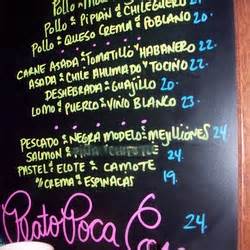 Pollo
Pollo Pipian & Chileguero
Pollo Queso Crema & Poblano 22.
Carne Asada Tomatillo Habanero 22.
Asada Chile Ahumado Tocino 22.
Deshebrada Guajillo 20.
Lomo Puerco Vino Blanco 23.
Pescado Negra Modelo Mejlliones 24.
Salmon Piña Chipotle 24.
Pastel Elote Camote 19.
y Crema Espinacas
Plato Poca 24.